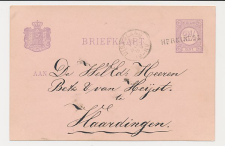 BRIEFKAART
AAN De WelEd. Heeren
Betz & van Heijst
te
Vlaardingen.